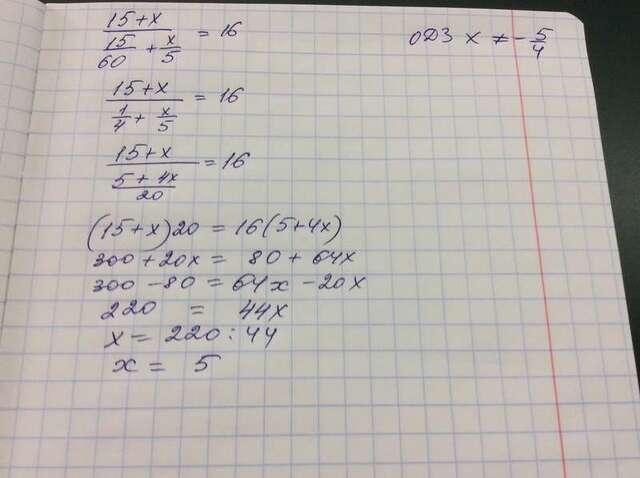 (15+x)/(15/60 + x/5) = 16
ОДЗ x ≠ -5/4
(15+x)/(1/4 + x/5) = 16
(15+x)/((5+4x)/20) = 16
(15+x)20 = 16(5+4x)
300 + 20x = 80 + 64x
300 - 80 = 64x - 20x
220 = 44x
x = 220 : 44
x = 5